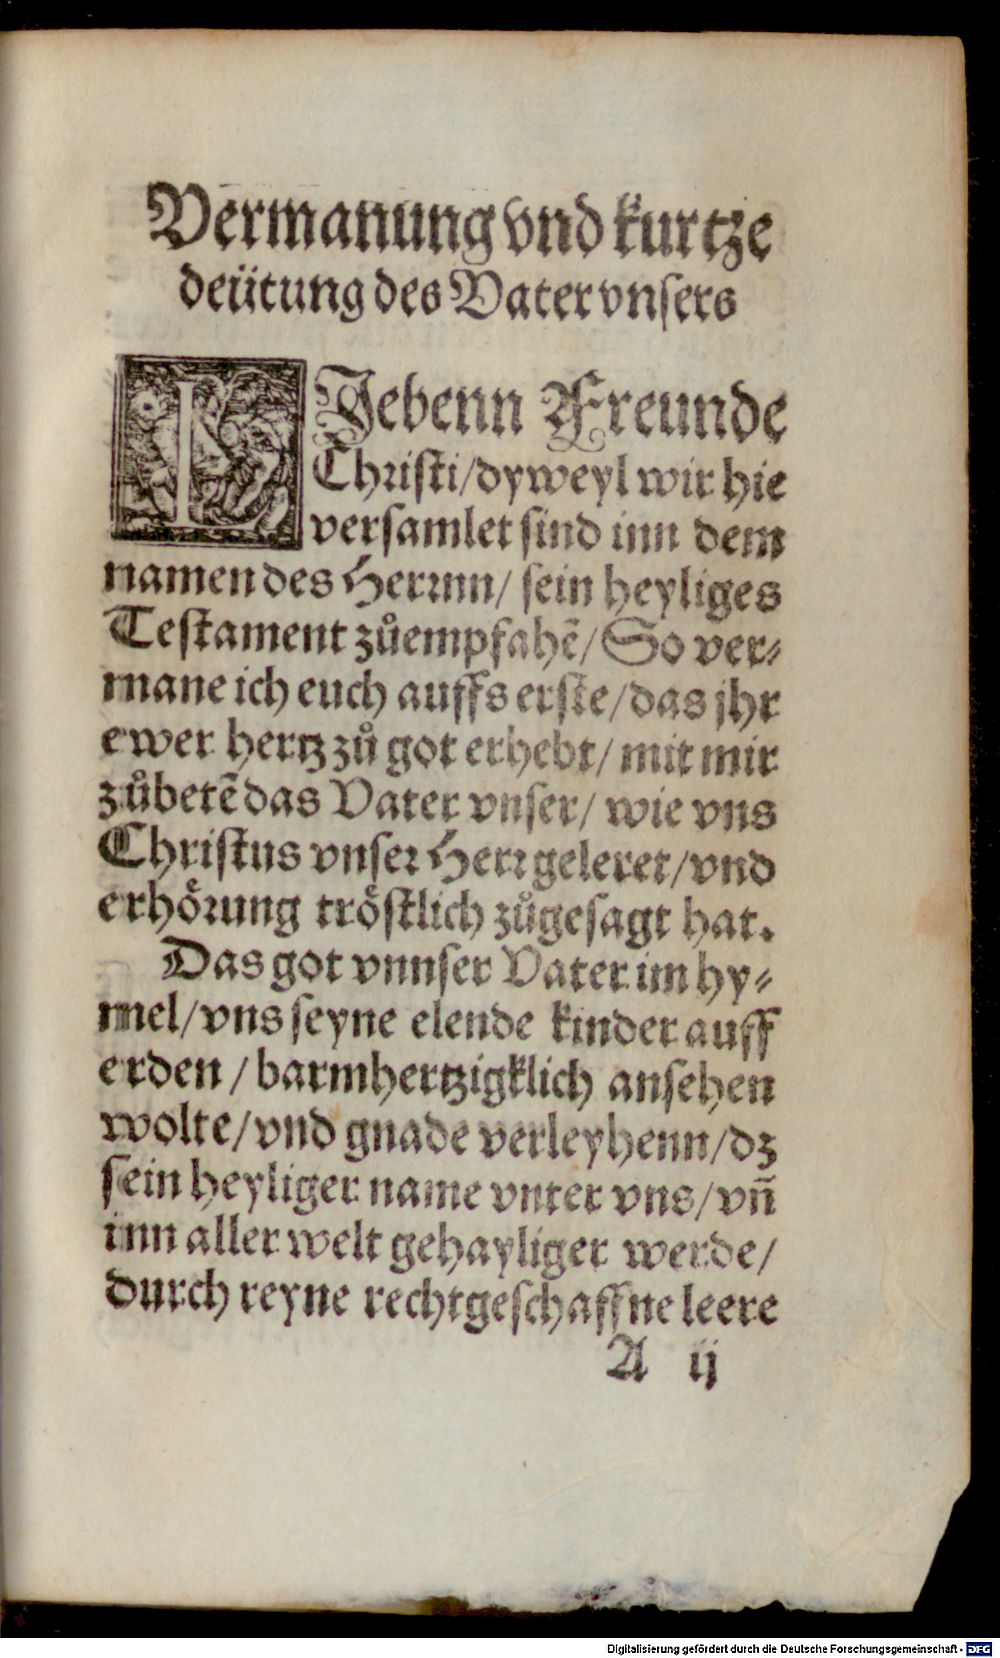 Vermanung vnd kurtze
deütung des Vater vnsers
LIebenn Freunde
Christi/dyweyl wir hie
versamlet sind inn dem
namen des Herrnn/ sein heyliges
Testament zůempfahē/ So ver⸗
mane ich euch auffs erste/das jhr
ewer hertz zů got erhebt/ mit mir
zůbetē das Vater vnser/ wie vns
Christus vnser Herr geleret/vnd
erhörung tröstlich zůgesagt hat.
Das got vnnser Vater im hy⸗
mel/vns seyne elende kinder auff
erden/ barmhertzigklich ansehen
wolte/vnd gnade verleyhenn/dz
sein heyliger name vnter vns/vn̄
inn aller welt gehayliger werde/
durch reyne rechtgeschaffne leere
A ij
Digitalisierung gefördert durch die Deutsche Forschungsgemeinschaft - DFG